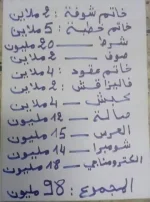 خاتم شوفة : 2 ملاين
خاتم خطبة : 5 ملاين
شرط — 20 مليون
صوف — 2 ملاين
خاتم مقود : 4 ملاين
فاليزا قش : 2 ملاين
كبش — 4 ملاين
صالة — 12 مليون
العرس — 15 مليون
شومبرا — 14 مليون
الكترومناجي — 18 مليون
المجموع : 98 مليون